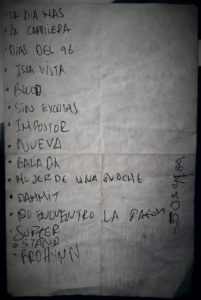 · UN DIA MAS
· LA CARRILERA
· DIAS DEL 96
· ISLA VISTA
· BLOOD
· SIN EXCUSAS
· IMPOSTOR
· NUEVA
· BALADA
· MUJER DE UNA NOCHE
· DAMMIT
· NO ENCUENTRO LA RAZON
· SURFER
· STAND
· BRO HYMN